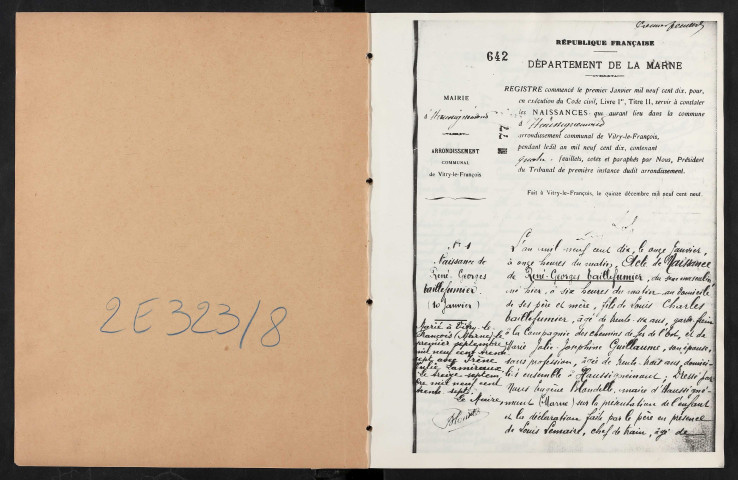 2E323/8
642
RÉPUBLIQUE FRANÇAISE
DÉPARTEMENT DE LA MARNE
MAIRIE
ARRONDISSEMENT
COMMUNAL
de Vitry-le-François
77
REGISTRE commencé le premier Janvier mil neuf cent dix, pour,
en exécution du Code civil, Livre Ier, Titre II, servir à constater
les NAISSANCES qui auront lieu dans la commune
à
arrondissement communal de Vitry-le-François,
pendant ledit an mil neuf cent dix, contenant
feuillets, cotés et paraphés par Nous, Président
du Tribunal de première instance dudit arrondissement.
Fait à Vitry-le-François, le quinze décembre mil neuf cent neuf.
No 1
Naissance de
René Georges
baillefumier
(10 Janvier)
Marié à Vitry-le-
François (Marne) le
premier septembre
mil neuf cent trente
sept avec Irène
Lamiraux
le treize septem
bre mil neuf cent
trente sept
Le Maire
L'an mil neuf cent dix, le onze Janvier,
à onze heures du matin, Acte de Naissance
de René Georges baillefumier, du sexe masculin
né hier, à six heures du matin au domicile
de ses père et mère, fils de Louis Charles
baillefumier, âgé de trente-six ans, garde-frein
à la Compagnie des chemins de fer de l'Est, et de
Marie Julie Joséphine Guillaume, son épouse,
sans profession, âgée de trente huit ans, domici-
liés ensemble à Haussignémont, Dressé par
Nous Eugène Blondelle, maire d'Haussigné-
mont (Marne) sur la présentation de l'enfant
et la déclaration faite par le père en présence
de Louis Lemaire, chef de train, âgé de